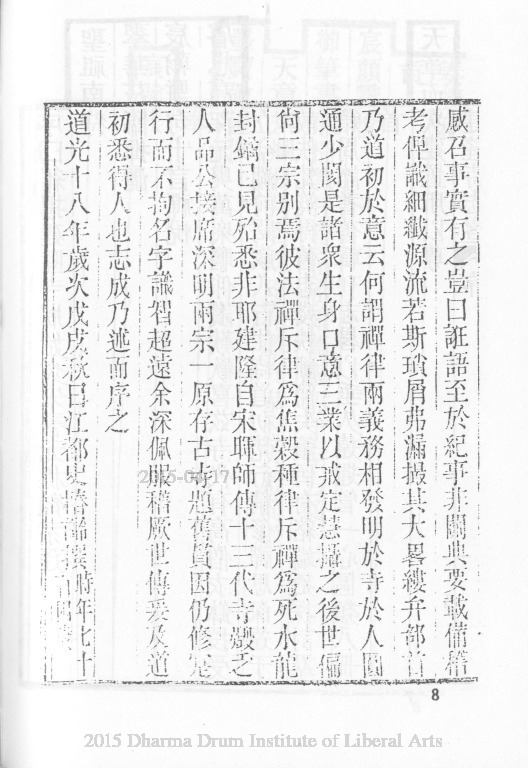 感召事實有之豈曰誑語至於紀事非關典要載備稽
考俾識細纖源流若斯瑣屑弗漏撮其大畧縷弁部首
乃道初於意云何謂禪律兩義務相發明於寺於人圓
通少閡是諸衆生身口意三業以戒定慧攝之後世偏
尚三宗別焉彼法禪斥律爲焦穀種律斥禪爲死水龍
封鎬已見殆悉非耶建隆自宋暉師傳十三代寺燬乏
人品公接席深明兩宗一原存古寺題舊貫因仍修定
行而不拘名字識智超遠余深佩服稽厥世傳爰及道
初悉得人也志成乃述而序之
道光十八年歲次戊戌秋日江都史 譔時年七十
2015-04-17
8
2015 Dharma Drum Institute of Liberal Arts